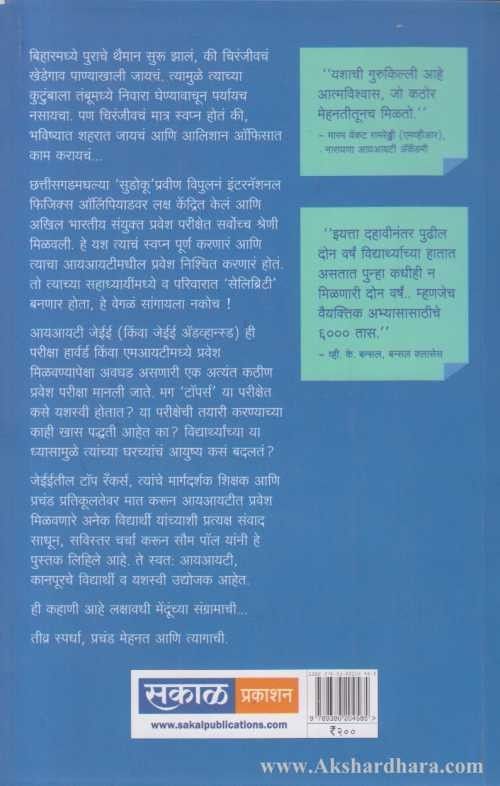 बिहारमध्ये पुराचे थैमान सुरू झालं, की चिरंजीवचं
खेडेगाव पाण्याखाली जायचं. त्यामुळे त्याच्या
कुटुंबाला तंबूमध्ये निवारा घेण्यावाचून पर्यायच
नसायचा. पण चिरंजीवचं मात्र स्वप्न होतं की,
भविष्यात शहरात जायचं आणि आलिशान ऑफिसात
काम करायचं...
छत्तीसगडमधल्या 'सुडोकू'प्रवीण विपुलनं इंटरनॅशनल
फिजिक्स ऑलिंपियाडवर लक्ष केंद्रित केलं आणि
अखिल भारतीय संयुक्त प्रवेश परीक्षेत सर्वोच्च श्रेणी
मिळवली. हे यश त्याचं स्वप्न पूर्ण करणारं आणि
त्याचा आयआयटीमधील प्रवेश निश्चित करणारं होतं.
तो त्याच्या सहाध्यायींमध्ये व परिवारात 'सेलिब्रिटी'
बनणार होता, हे वेगळं सांगायला नकोच !
आयआयटी जेईई (किंवा जेईई अ‍ॅडव्हान्स्ड) ही
परीक्षा हार्वर्ड किंवा एमआयटीमध्ये प्रवेश
मिळवण्यापेक्षा अवघड असणारी एक अत्यंत कठीण
प्रवेश परीक्षा मानली जाते. मग 'टॉपर्स' या परीक्षेत
कसे यशस्वी होतात? या परीक्षेची तयारी करण्याच्या
काही खास पद्धती आहेत का? विद्यार्थ्यांच्या या
ध्यासामुळे त्यांच्या घरच्यांचं आयुष्य कसं बदलतं?
जेईईतील टॉप रँकर्स, त्यांचे मार्गदर्शक शिक्षक आणि
प्रचंड प्रतिकूलतेवर मात करून आयआयटीत प्रवेश
मिळवणारे अनेक विद्यार्थी यांच्याशी प्रत्यक्ष संवाद
साधून, सविस्तर चर्चा करून सौम पॉल यांनी हे
पुस्तक लिहिले आहे. ते स्वतः आयआयटी,
कानपूरचे विद्यार्थी व यशस्वी उद्योजक आहेत.
ही कहाणी आहे लक्षावधी मेंदूंच्या संग्रामाची...
तीव्र स्पर्धा, प्रचंड मेहनत आणि त्यागाची.
"यशाची गुरुकिल्ली आहे
आत्मविश्वास, जो कठोर
मेहनतीतूनच मिळतो."
– मारम वेंकट रामरेड्डी (एमव्हीआर),
नारायणा आयआयटी अ‍ॅकॅडमी
"इयत्ता दहावीनंतर पुढील
दोन वर्षं विद्यार्थ्यांच्या हातात
असतात पुन्हा कधीही न
मिळणारी दोन वर्षं.. म्हणजेच
वैयक्तिक अभ्यासासाठीचे
६००० तास."
– व्ही. के. बन्सल, बन्सल क्लासेस
सकाळ प्रकाशन
www.sakalpublications.com
₹२००
www.Akshardhara.com